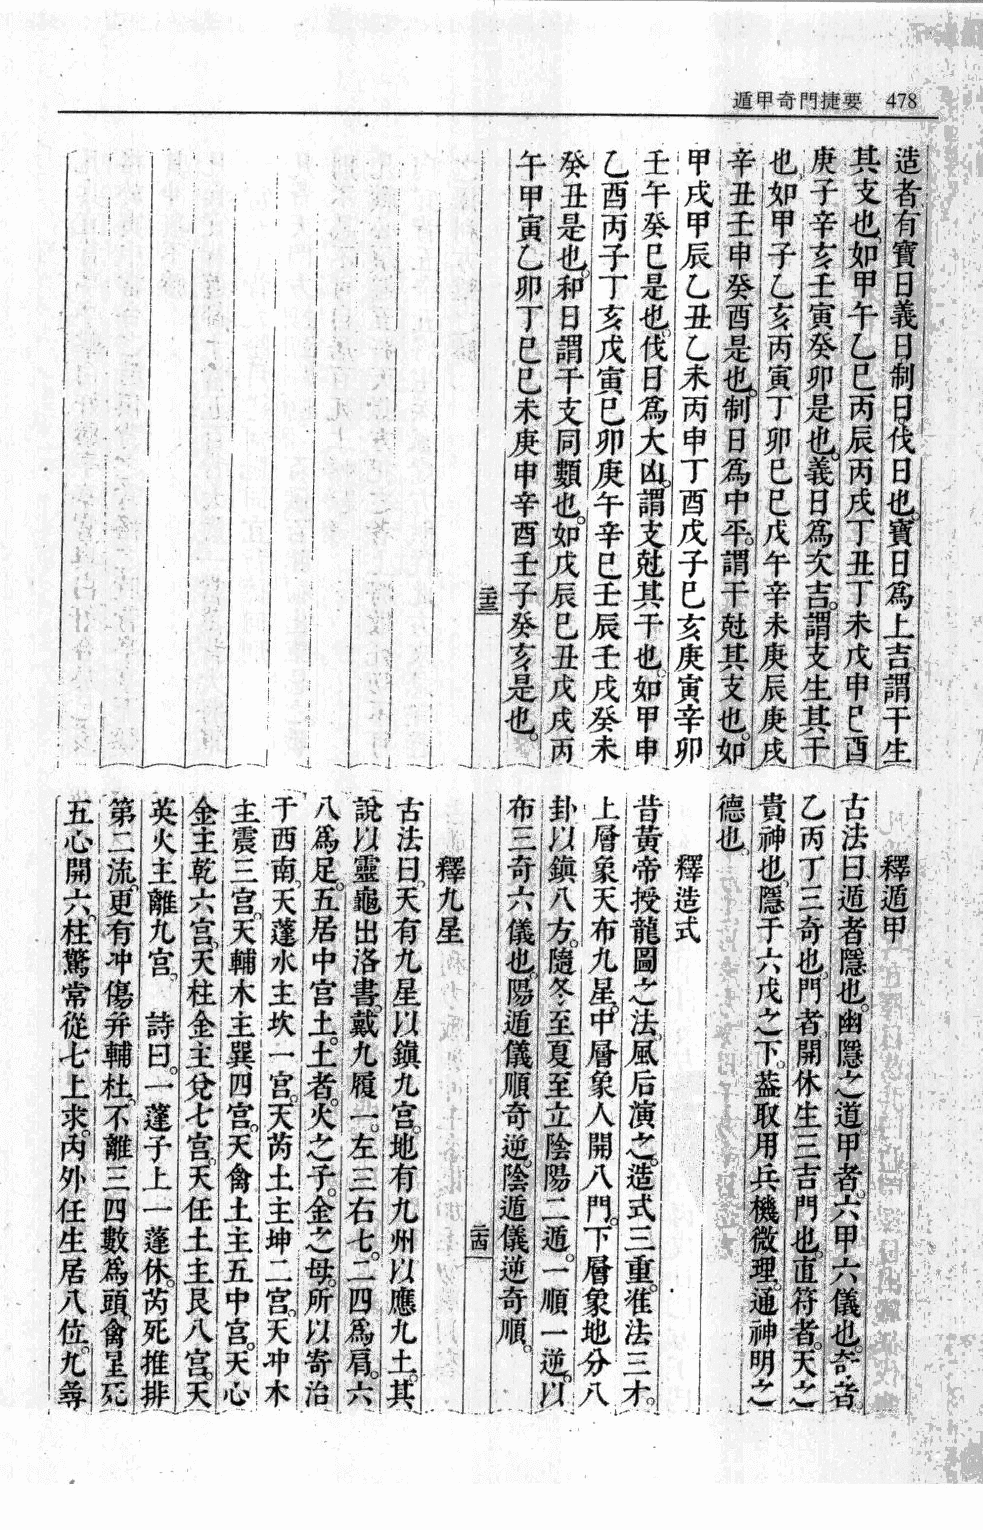 遁甲奇門捷要　478
造者有寶日義日制日伐日也。寶日爲上吉謂干生
其支也如甲午乙巳丙辰丙戌丁丑丁未戊申巳酉
庚子辛亥壬寅癸卯是也。義日爲次吉。謂支生其干
也如甲子乙亥丙寅丁卯巳巳戊午辛未庚辰庚戌
辛丑壬申癸酉是也。制日爲中平。謂干尅其支也。如
甲戌甲辰乙丑乙未丙申丁酉戊子巳亥庚寅辛卯
壬午癸巳是也。伐日爲大凶。謂支尅其干也。如甲申
乙酉丙子丁亥戊寅巳卯庚午辛巳壬辰壬戌癸未
癸丑是也。和日謂干支同類也。如戊辰巳丑戊戌丙
午甲寅乙卯丁巳巳未庚申辛酉壬子癸亥是也。
二十三
釋遁甲
古法曰遁者隱也。幽隱之道。甲者。六甲六儀也。奇者
乙丙丁三奇也。門者開休生三吉門也。直符者。天之
貴神也。隱于六戊之下。葢取用兵機微理。通神明之
德也。
釋造式
昔黃帝授龍圖之法。風后演之。造式三重。准法三才。
上層象天布九星。中層象人開八門。下層象地分八
卦以鎮八方。隨冬至夏至立陰陽二遁。一順一逆。以
布三奇六儀也。陽遁儀順奇逆。陰遁儀逆奇順。
二十四
釋九星
古法曰。天有九星以鎮九宮。地有九州以應九土。其
說以靈龜出洛書。戴九履一。左三右七。二四爲肩。六
八爲足。五居中宮土。土者。火之子。金之母。所以寄治
于西南。天蓬水主坎一宮。天芮土主坤二宮。天冲木
主震三宮。天輔木主巽四宮。天禽土主五中宮。天心
金主乾六宮。天柱金主兌七宮。天任土主艮八宮。天
英火主離九宮。　詩曰。一蓬子上一蓬休。芮死推排
第二流。更有冲傷并輔杜。不離三四數爲頭。禽星死
五心開六。柱驚常從七上求。丙外任生居八位。九尋